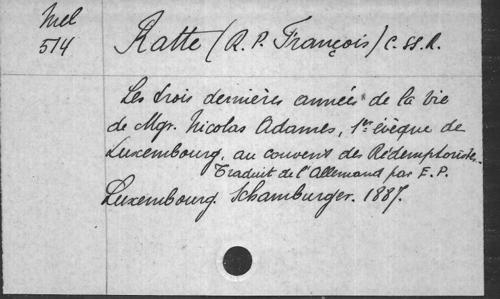 Mel
514
Ratte (R. P. François) C. SS. R.
Les trois dernières années de la vie
de Mgr. Nicolas Adames, 1er évêque de
Luxembourg, au couvent des Rédemptoristes.
Traduit de l'Allemand par E. P.
Luxembourg. Schamburger. 1887.